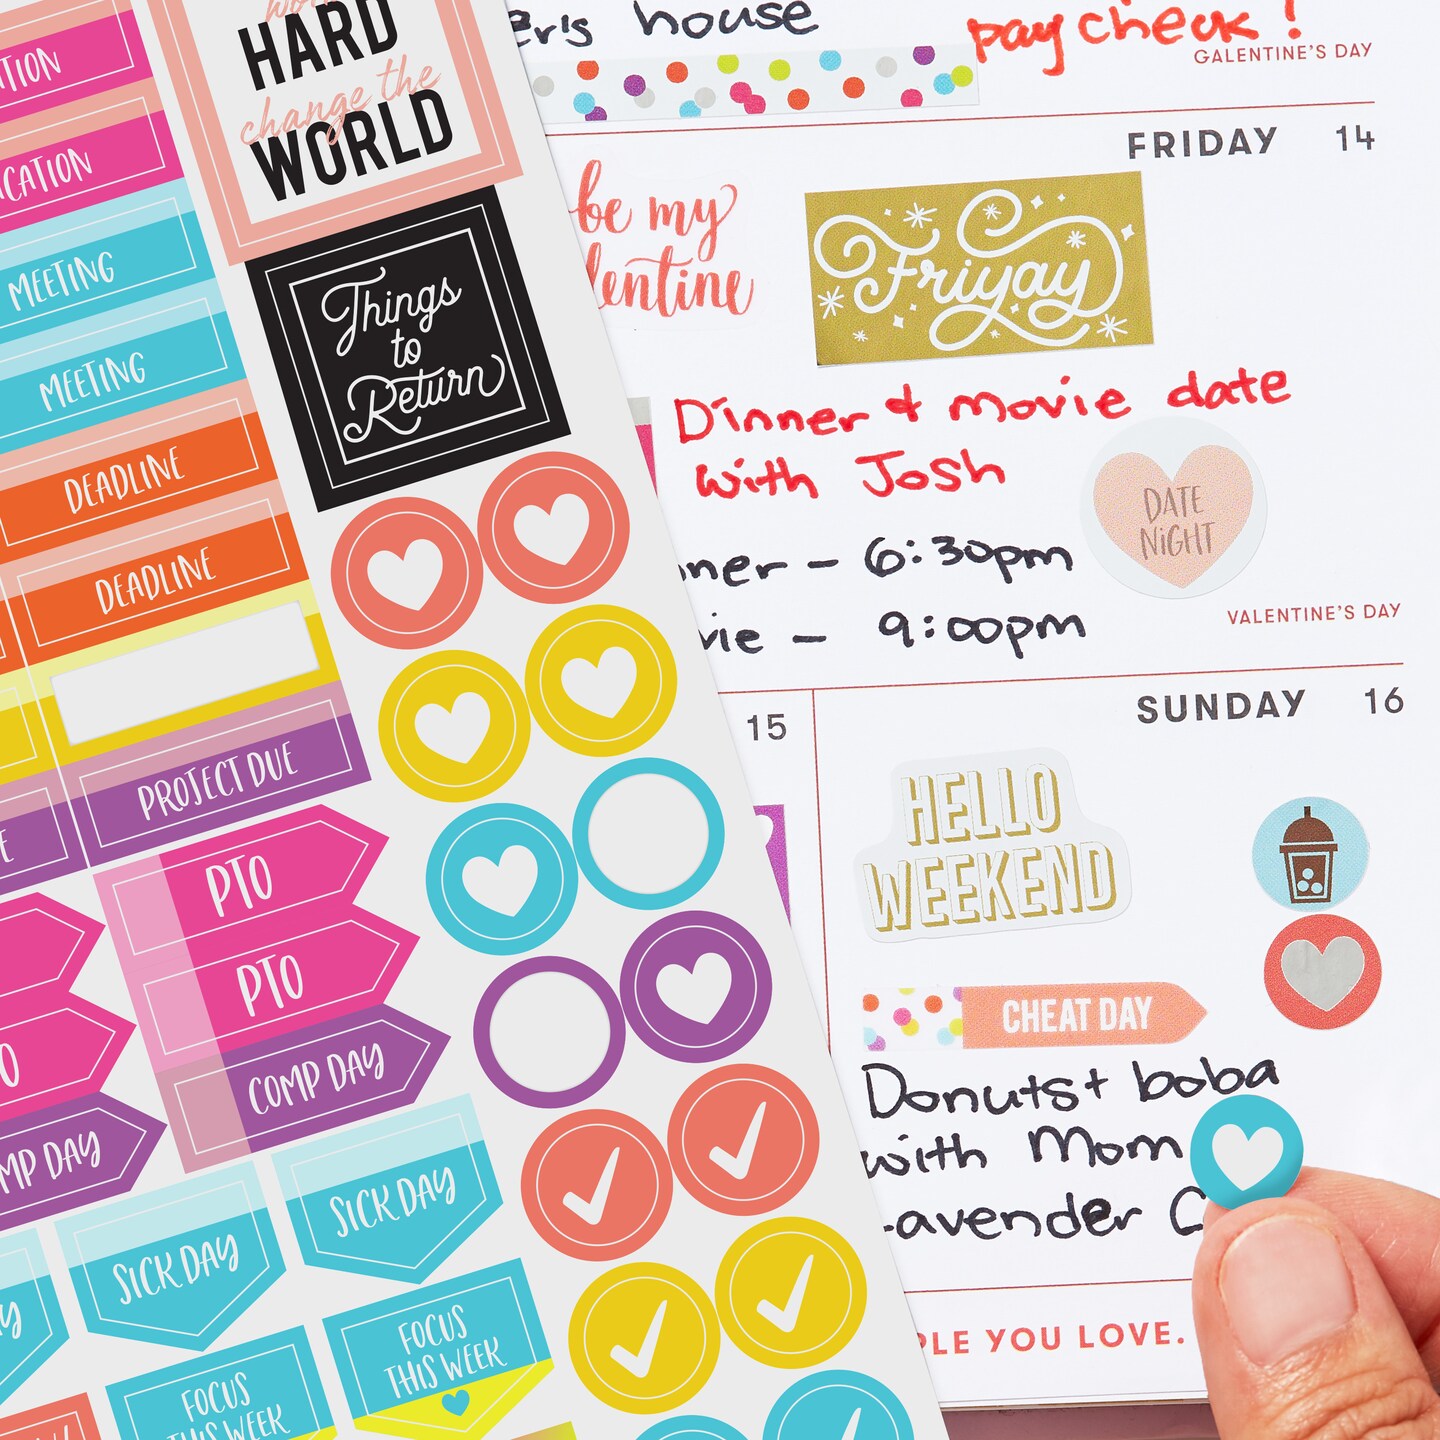 HARD
change the
WORLD
TION
CATION
MEETING
MEETING
DEADLINE
DEADLINE
PROJECT DUE
E
PTO
PTO
O
COMP DAY
MP DAY
SICK DAY
SICK DAY
AY
FOCUS
THIS WEEK
FOCUS
THIS WEEK
Things
to
Return
er's house
pay check!
GALENTINE'S DAY
FRIDAY 14
be my
lentine
Friyay
Dinner & movie date
with Josh
DATE
NIGHT
ner - 6:30pm
vie - 9:00pm
VALENTINE'S DAY
15
SUNDAY 16
HELLO
WEEKEND
CHEAT DAY
Donuts + boba
with Mom
Lavender C
PLE YOU LOVE.